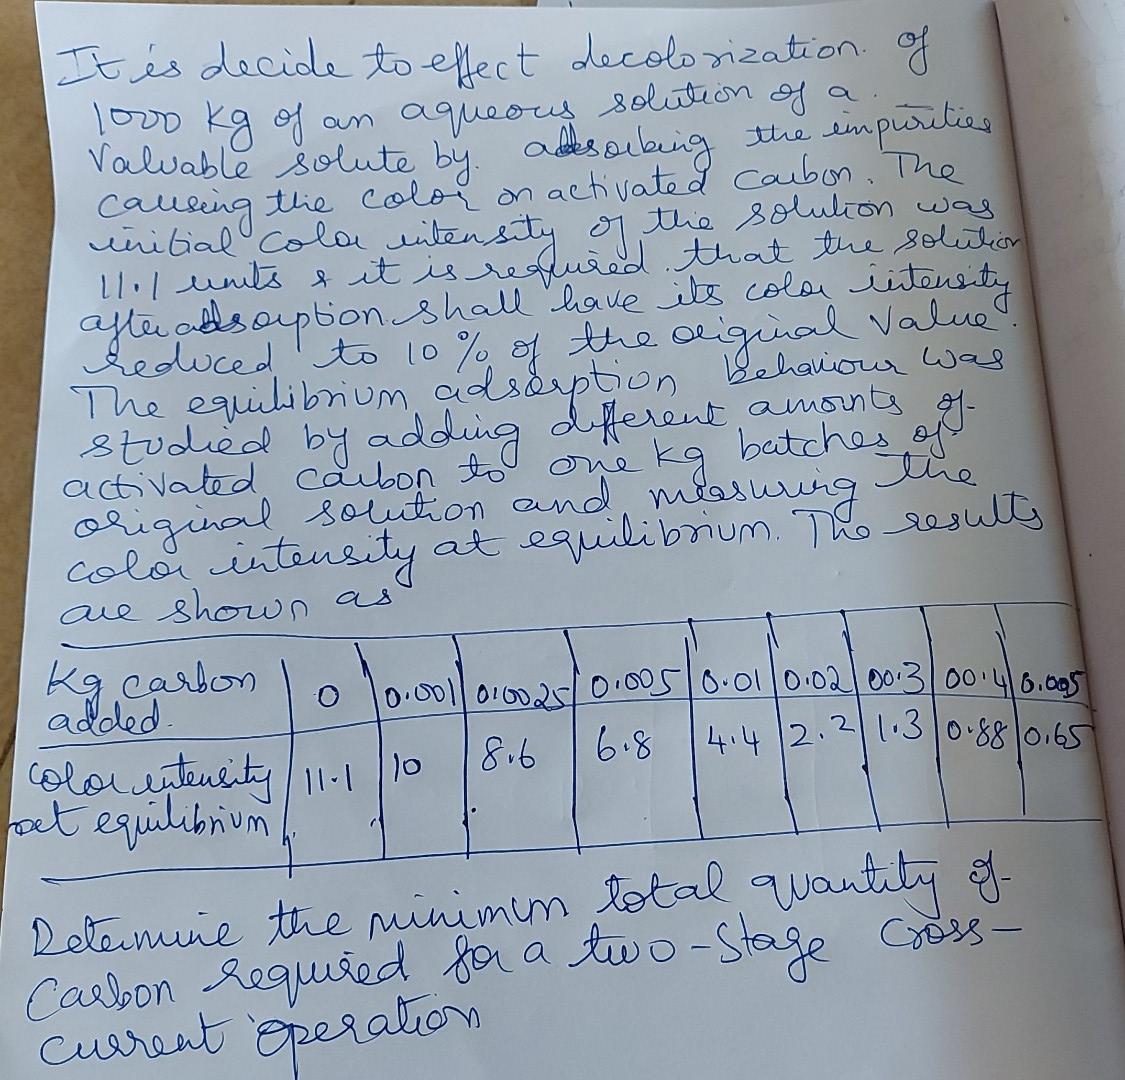 It is decide to effect decolorization of
1000 kg of an aqueous solution of a
Valuable solute by. adsorbing the impurities
causing the color on activated carbon. The
initial color intensity of the solution was
11.1 units & it is required that the solution
after adsorption shall have its color intensity
reduced to 10% of the original value.
The equilibrium adsorption behaviour was
studied by adding different amonts of
activated carbon to one kg batches of
original solution and measuring the
color intensity at equilibrium. The results
are shown as
Kg carbon added. 0 0.001 0.0025 0.005 0.01 0.02 00.3 00.4 0.005
color intensity at equilibrium 11.1 10 8.6 6.8 4.4 2.2 1.3 0.88 0.65
Determine the minimum total quantity of
Carbon required for a two-stage cross-
current operation